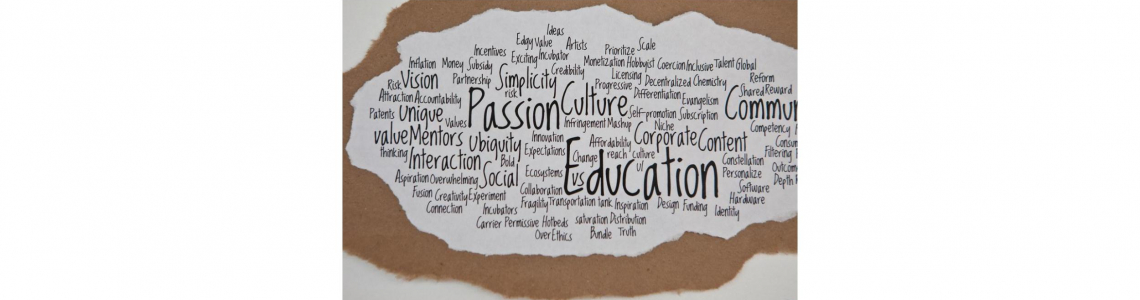 Ideas
Edgy Value Artists
Prioritize Scale
Incentives Exciting Incubator
Inflation Money Subsidy Monetization Hobbyist Coercion Inclusive Talent Global
Credibility
Risk Vision Partnership Simplicity Licensing Decentralized Chemistry Reform
risk Progressive Shared Reward
Attraction Accountability Differentiation Evangelism
Passion Culture Commun
Patents Unique Values Self-promotion Subscription
Infringement Mashup Niche Competency
value Mentors Ubiquity Innovation Affordability Corporate Content Consum
thinking Interaction Bold Expectations Change reach culture Constellation Filtering
Ecosystems vs Education ul Personalize Outcom
Aspiration Overwhelming Social Depth
Collaboration Software
Fusion Creativity Experiment Hardware
Connection Incubators Fragility Transportation tank Inspiration Design Funding Identity
Carrier Permissive Hotbeds saturation Distribution
Over Ethics Bundle Truth